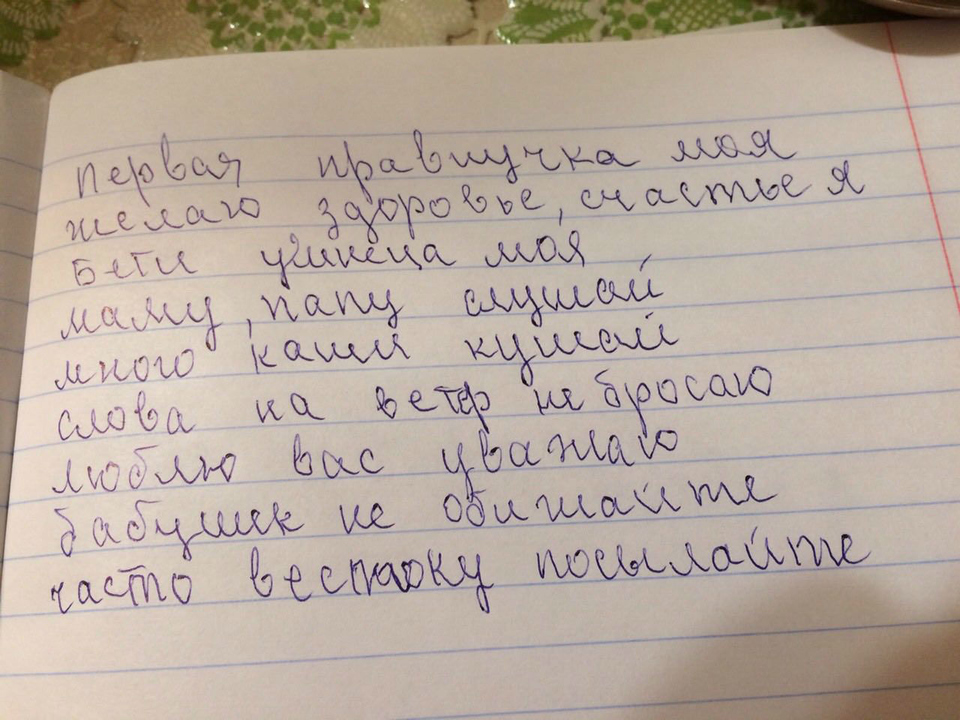 первая правнучка моя
желаю здоровье, счастье я
Бети умнеца моя
маму, папу слушай
много каши кушай
слова на ветер не бросаю
люблю вас уважаю
бабушек не обижайте
часто весточку посылайте